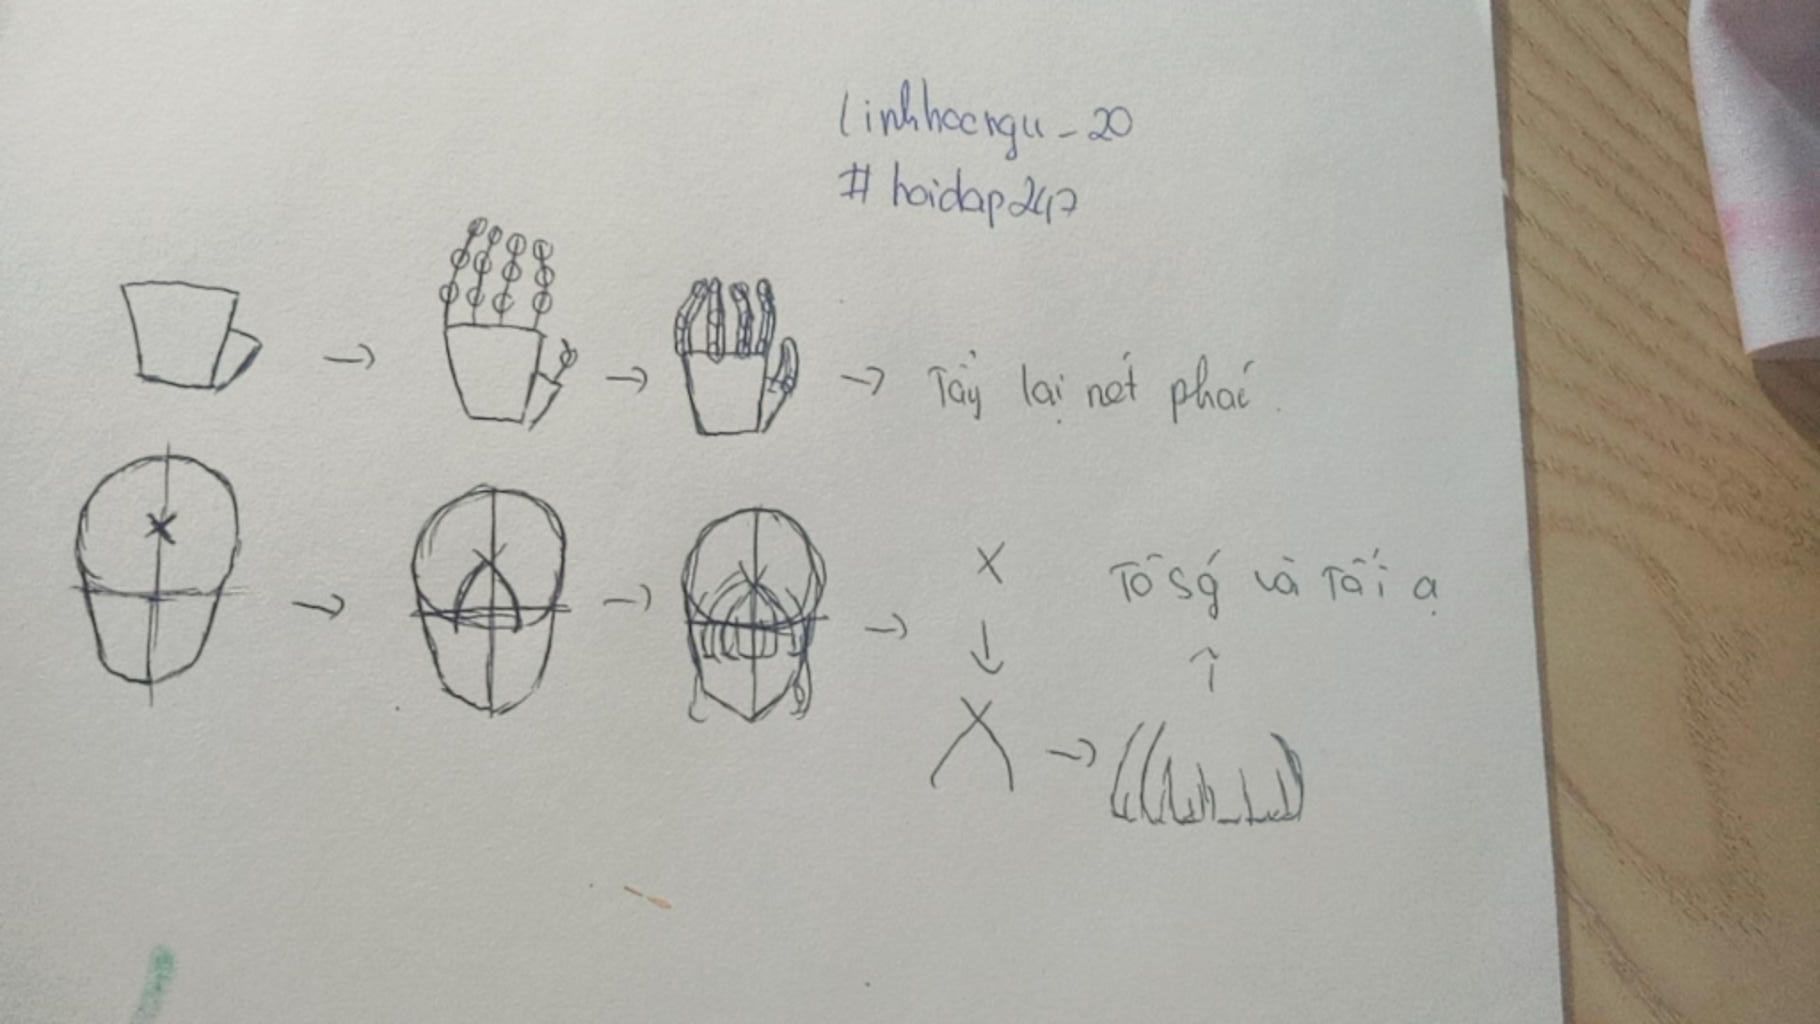 linhhocngu_20
#hoidap247
Tẩy lại nét phác.
Tô sợ và Tối ạ